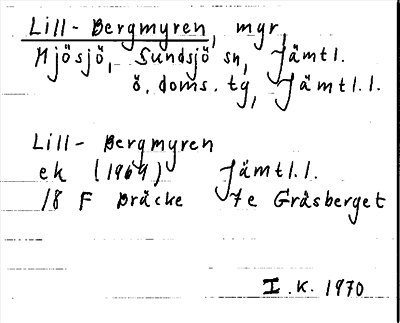 Lill-Bergmyren, myr,
Mjösjö, Sundsjö sn, Jämtl.
ö. doms. tg, Jämtl.l.
Lill-Bergmyren
ek (1969) Jämtl.l.
18 F Bräcke 7e Gräsberget
I.K. 1970